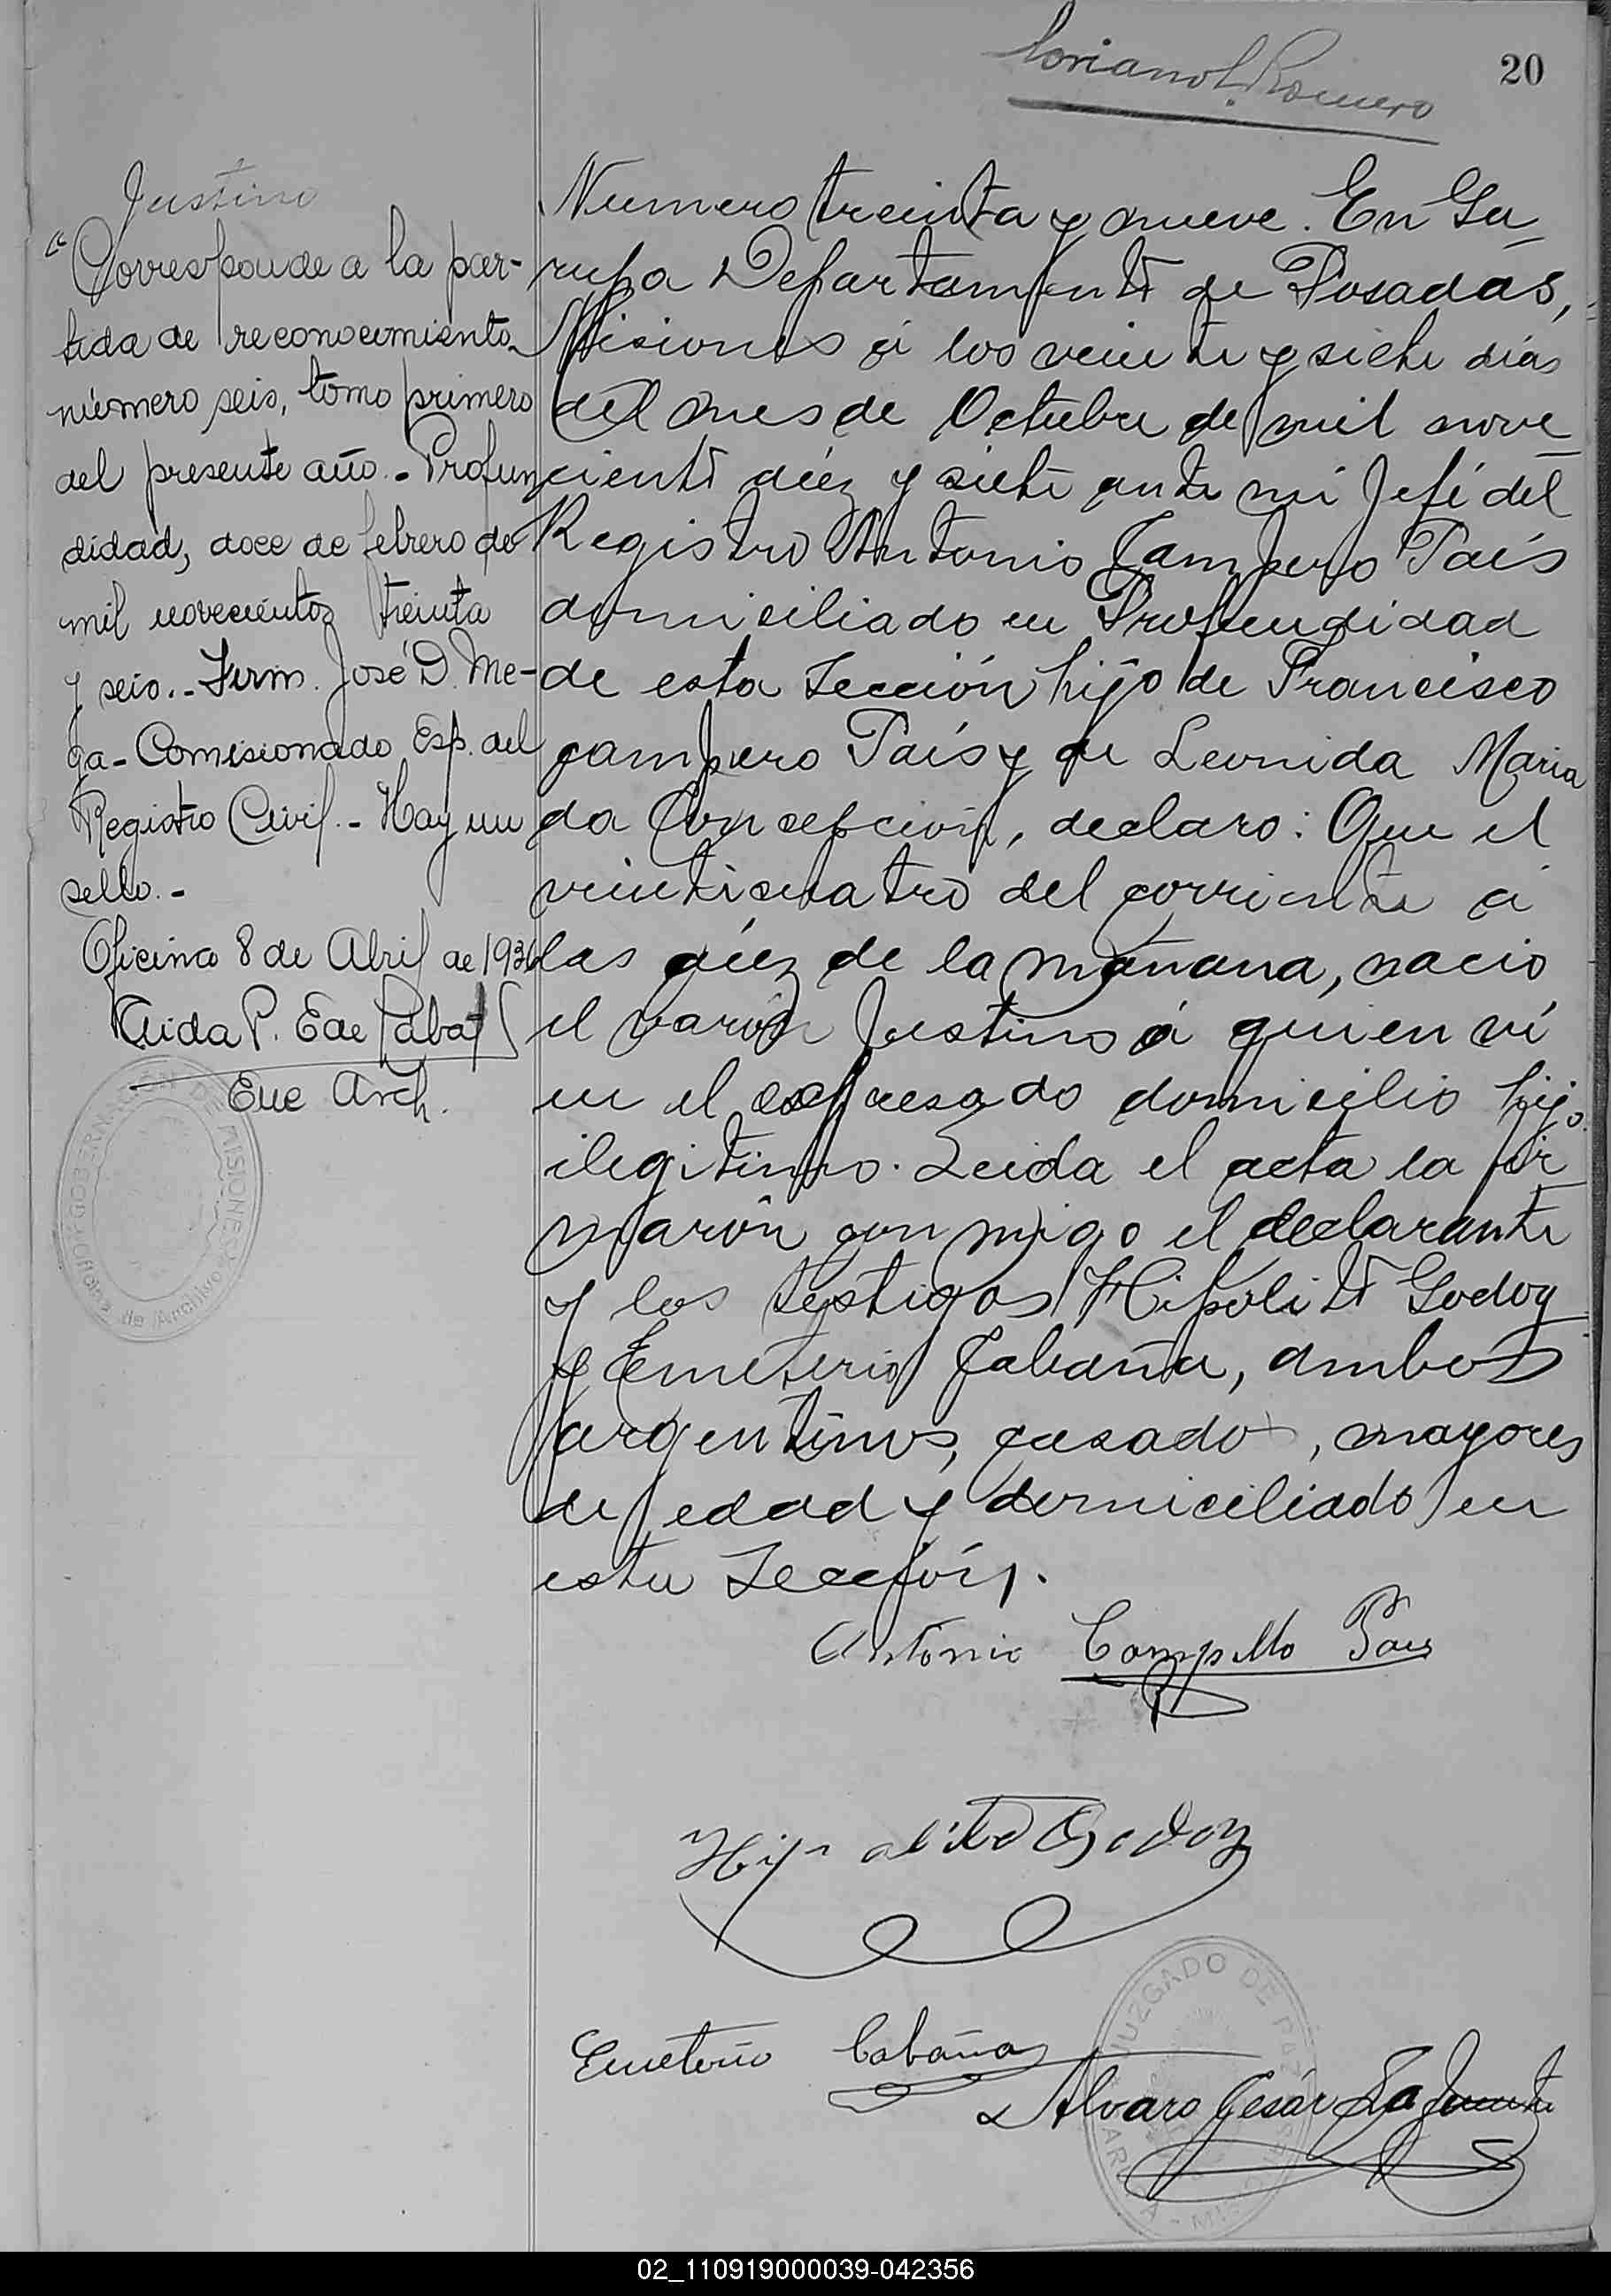 20
Romero
Justino
"Corresponde a la par-
tida de reconocimiento
número seis, tomo primero
del presente año.- Profun
didad, doce de febrero de
mil novecientos treinta
y seis.- Firm. José D. Me-
ga- Comisionado Esp. del
Registro Civil.- Hay un
sello.-
Oficina 8 de Abril de 1936
Aida P. E de
Enc Arch.
GOBERNACIÓN DE MISIONES
Oficina de Archivo
Numero treinta y nueve. En Ga_
rupa Departamento de Posadas,
Misiones á los veinte y siete dias
del mes de Octubre de mil nove_
ciento diez y siete ante mi Jefe del
Registro Antonio Campero Païs
domiciliado en Profundidad
de esta Sección hijo de Francisco
Campero Païs y de Leonida Maria
da Concepción, declaro: Que el
veinticuatro del corriente á
las diez de la mañana, nacio
el varón Justino á quien ví
en el expresado domicilio hijo
ilegitimo. Leida el acta la fir_
marón conmigo el declarante
y los testigos Hipolito Godoy
y Emeterio Cabaña, ambos
argentinos, casado, mayores
de edad y domiciliado en
esta Sección.
Antonio Campello Pais
Hipolito Godoy
Emeterio Cabaña
Alvaro César Lafuente
JUZGADO DE PAZ